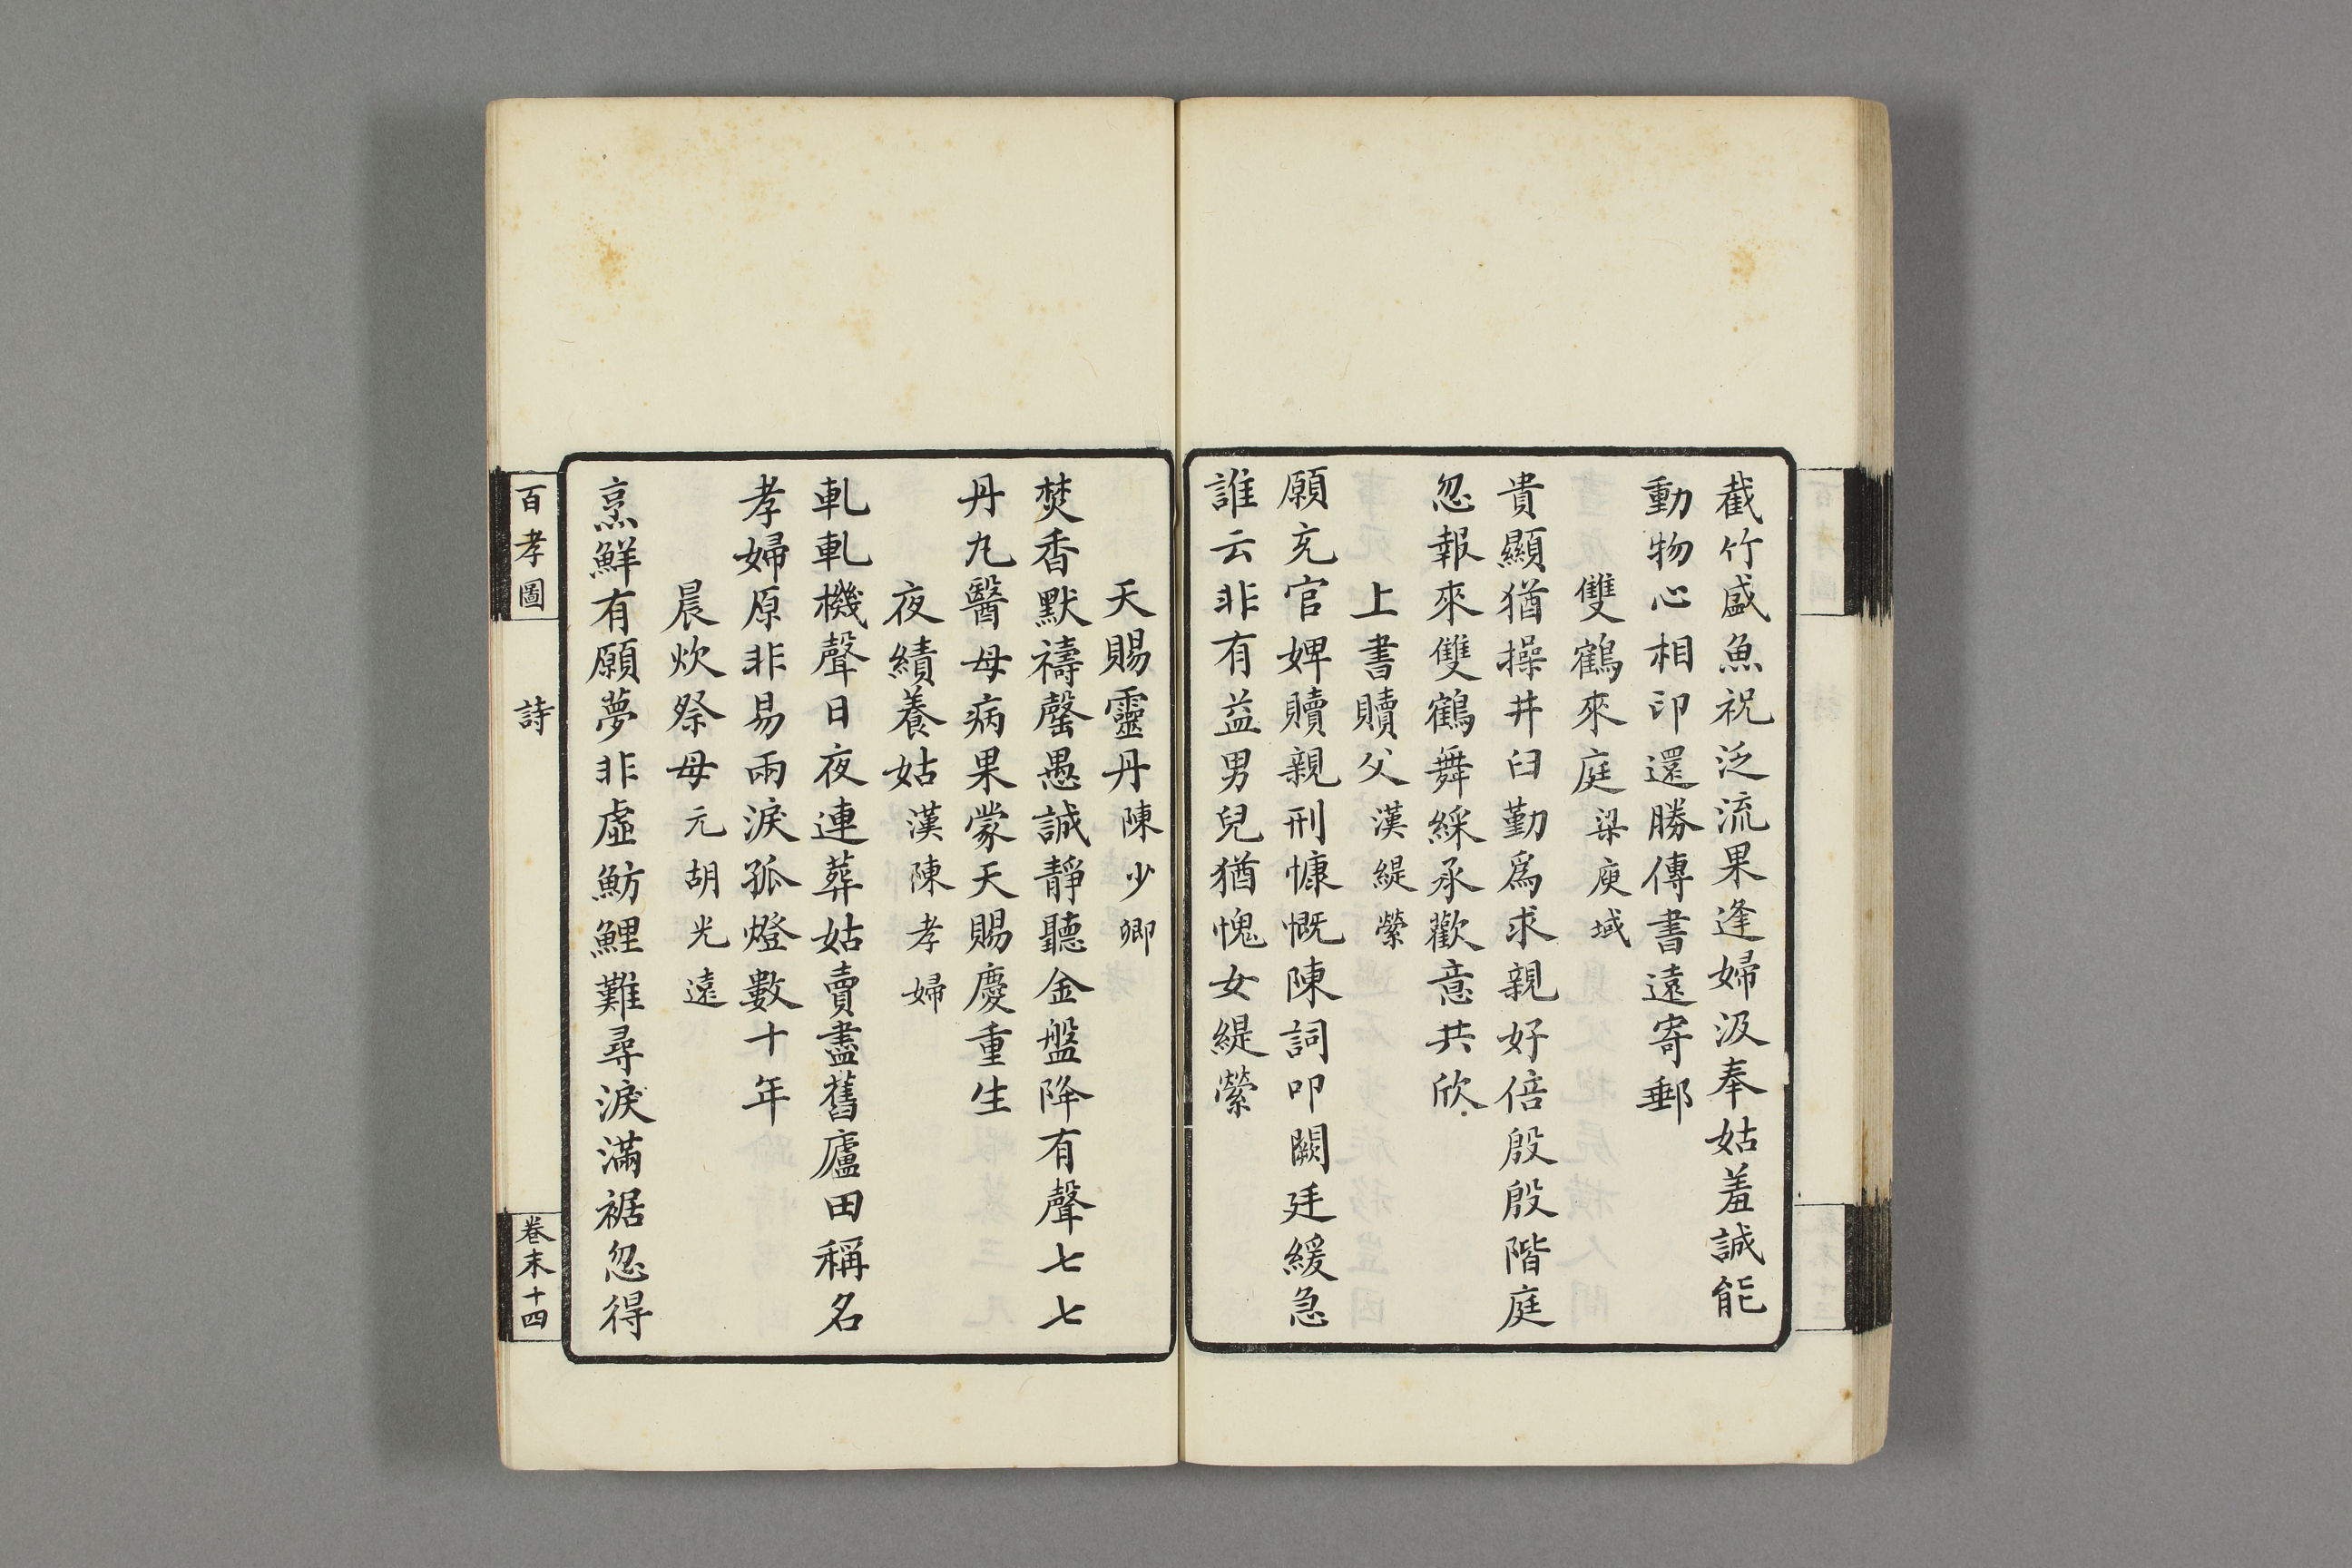 截竹盛魚祝泛流果逢婦汲奉姑羞誠能
動物心相印還勝傳書遠寄郵
雙鶴來庭梁庾域
貴顯猶操井臼勤爲求親好倍殷殷階庭
忽報來雙鶴舞綵承歡意共欣
上書贖父漢緹縈
願充官婢贖親刑慷慨陳詞叩闕廷緩急
誰云非有益男兒猶愧女緹縈
天賜靈丹陳少卿
焚香默禱罄愚誠靜聽金盤降有聲七七
丹丸醫母病果蒙天賜慶重生
夜績養姑漢陳孝婦
軋軋機聲日夜連葬姑賣盡舊廬田稱名
孝婦原非易兩淚孤燈數十年
晨炊祭母元胡光遠
烹鮮有願夢非虛魴鯉難尋淚滿裾忽得
百孝圖
詩
卷末十四